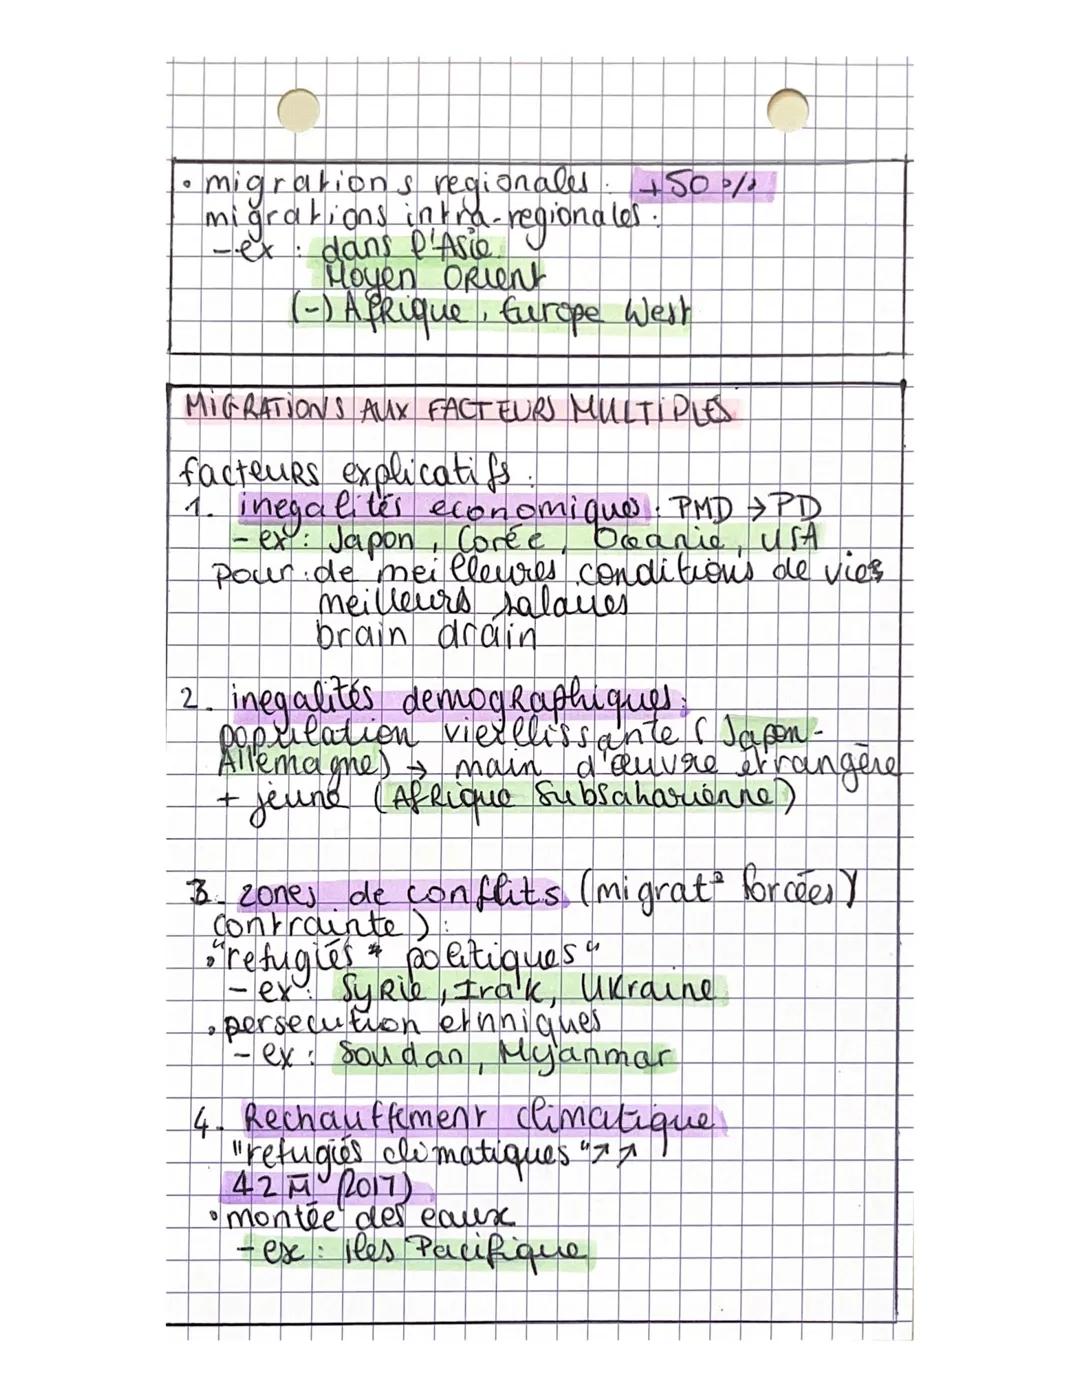 • migrations regionales : +50 %
migrations intra-regionales :
- ex : dans l'Asie
Moyen Orient
(-) Afrique, Europe West
MIGRATIONS AUX FACTEURS MULTIPLES
facteurs explicatifs :
1. inegalités economiques : PMD → PD
- ex : Japon, Corée, Oceanie, USA
pour : de meilleures conditions de vies
meilleurs salaires
brain drain
2. inegalités demographiques :
population vieillissante (Japon-
Allemagne) → main d'œuvre étrangère
+ jeune (Afrique Subsaharienne)
3. zones de conflits (migrat° forcées/
contrainte) :
• "refugiés * politiques"
- ex : Syrie, Irak, Ukraine
• persecution ethniques
- ex : Soudan, Myanmar
4. Rechauffement climatique
"refugiés climatiques" ↗↗
42 M (2017)
• montée des eaux
- ex : iles Pacifique